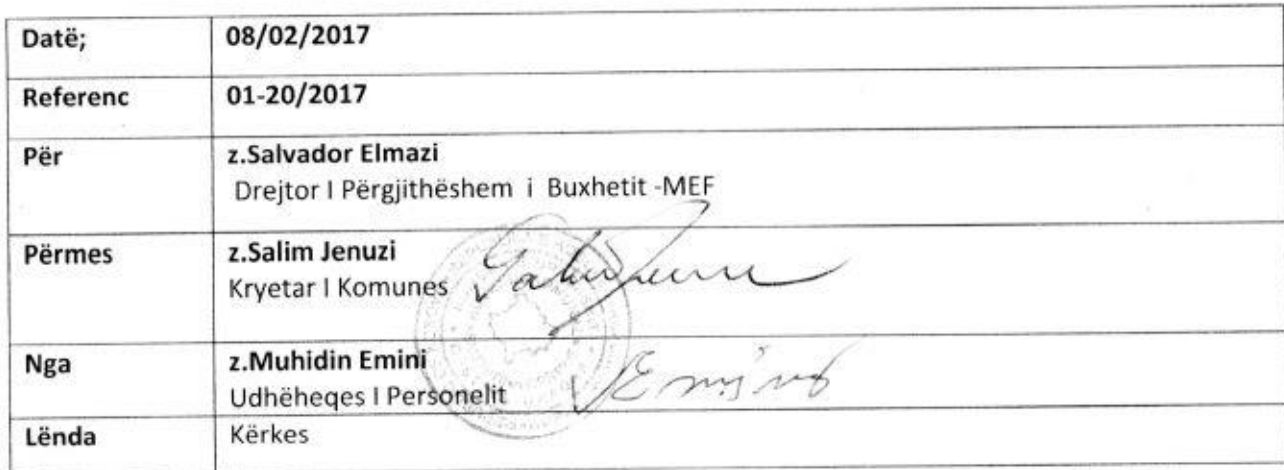 Datë; 08/02/2017
Referenc 01-20/2017
Për z.Salvador Elmazi
Drejtor I Përgjithëshem i Buxhetit -MEF
Përmes z.Salim Jenuzi
Kryetar I Komunes
Nga z.Muhidin Emini
Udhëheqes I Personelit
Lënda Kërkes